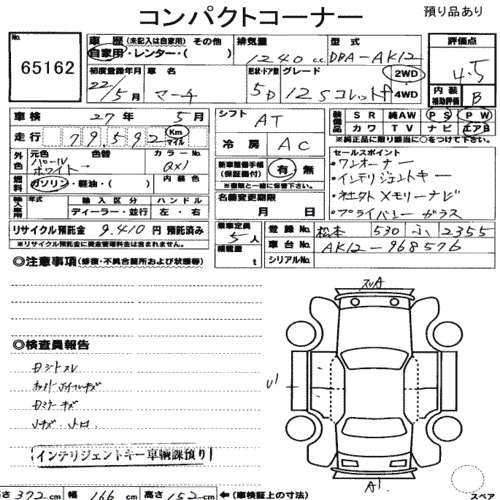 コンパクトコーナー
預り品あり
No.
65162
車歴 (未記入は自家用) その他
自家用・レンター・( )
排気量
1240 cc
型式
DBA-AK12
評価点
4.5
初度登録年月
22/5月
車名
マーチ
形状・ドア数
5D
グレード
12Sコレット
2WD
4WD
内装
補助評価
B
車検 27年 5月
走行 79,592 Km マイル
シフト
AT
冷房
AC
装備品
SR 純AW PS PW
カワ TV ナビ エアB
※純正品に限り該当に○をつけて下さい
外色
元色
パールホワイト
色替
カラーNo.
QX1
燃料
ガソリン・軽油・( )
内装色
新車整備手帳
(保証書付)
有・無
※後日送付は一緒に保管して下さい
セールスポイント
・ワンオーナー
・インテリジェントキー
・社外メモリーナビ
・プライバシーガラス
輸入車
年式
輸入区分
ディーラー・並行
ハンドル
左・右
名義変更期限
月 日
リサイクル預託金 9,410円 預託済み
※リサイクル預託金に資金管理料金は含まれておりません
乗車定員
5人
積載量
t
登録No.
松本 530 ふ 2355
車台No.
AK12-968576
シリアルNo.
◎注意事項 (修復・不具合箇所および状態等)
◎検査員報告
インテリジェントキー車輌課預り
スリA
U1
A1
高さ 372cm 幅 166cm 高さ 152cm ←(車検証上の寸法)
スペア